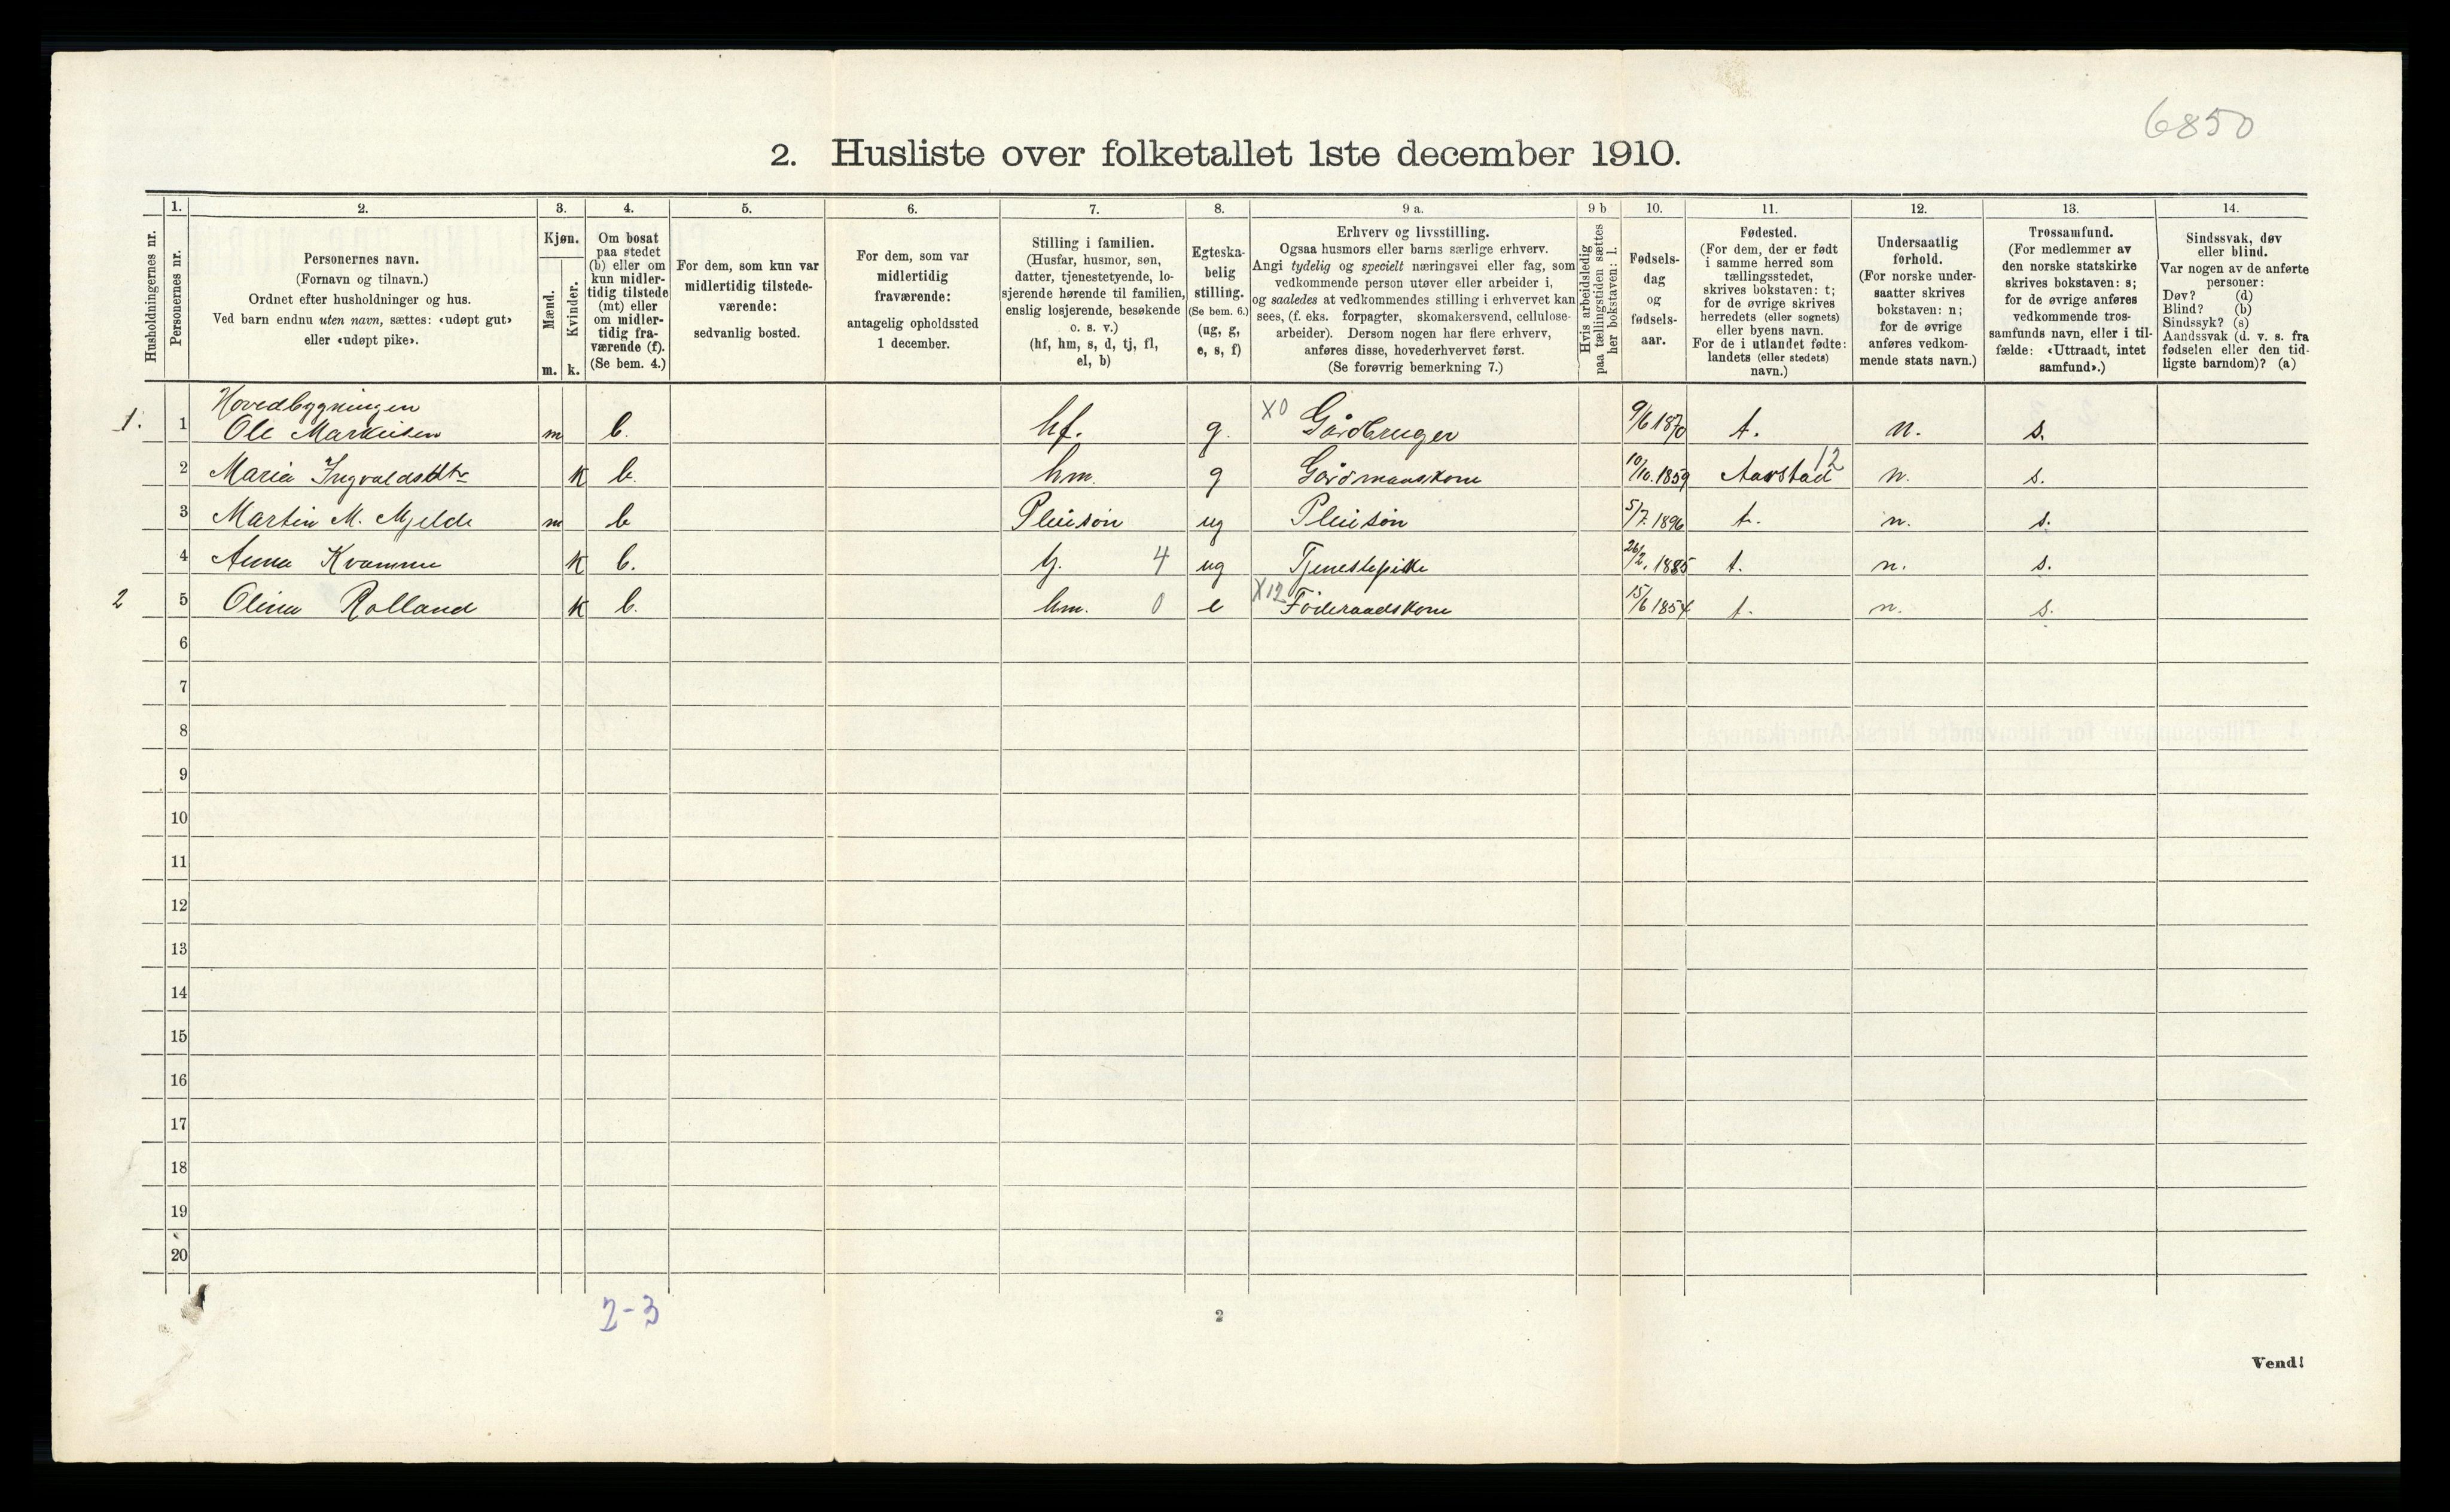 6850
2. Husliste over folketallet 1ste december 1910.
Husholdningernes nr.
1.
Personernes nr.
2.
Personernes navn.
(Fornavn og tilnavn.)
Ordnet efter husholdninger og hus.
Ved barn endnu uten navn, sættes: «udøpt gut»
eller «udøpt pike».
3.
Kjøn.
Mænd.
Kvinder.
m. k.
4.
Om bosat
paa stedet
(b) eller om
kun midler-
tidig tilstede
(mt) eller
om midler-
tidig fra-
værende (f).
(Se bem. 4.)
5.
For dem, som kun var
midlertidig tilstede-
værende:
sedvanlig bosted.
6.
For dem, som var
midlertidig
fraværende:
antagelig opholdssted
1 december.
7.
Stilling i familien.
(Husfar, husmor, søn,
datter, tjenestetyende, lo-
sjerende hørende til familien,
enslig losjerende, besøkende
o. s. v.)
(hf, hm, s, d, tj, fl,
el, b)
8.
Egteska-
belig
stilling.
(Se bem. 6.)
(ug, g,
e, s, f)
9 a.
Erhverv og livsstilling.
Ogsaa husmors eller barns særlige erhverv.
Angi tydelig og specielt næringsvei eller fag, som
vedkommende person utøver eller arbeider i,
og saaledes at vedkommendes stilling i erhvervet kan
sees, (f. eks. forpagter, skomakersvend, cellulose-
arbeider). Dersom nogen har flere erhverv,
anføres disse, hovederhvervet først.
(Se forøvrig bemerkning 7.)
9 b
Hvis arbeidsledig
paa tællingstiden sættes
her bokstaven: l.
10.
Fødsels-
dag
og
fødsels-
aar.
11.
Fødested.
(For dem, der er født
i samme herred som
tællingsstedet,
skrives bokstaven: t;
for de øvrige skrives
herredets (eller sognets)
eller byens navn.
For de i utlandet fødte:
landets (eller stedets)
navn.)
12.
Undersaatlig
forhold.
(For norske under-
saatter skrives
bokstaven: n;
for de øvrige
anføres vedkom-
mende stats navn.)
13.
Trossamfund.
(For medlemmer av
den norske statskirke
skrives bokstaven: s;
for de øvrige anføres
vedkommende tros-
samfunds navn, eller i til-
fælde: «Uttraadt, intet
samfund».)
14.
Sindssvak, døv
eller blind.
Var nogen av de anførte
personer:
Døv? (d)
Blind? (b)
Sindssyk? (s)
Aandssvak (d. v. s. fra
fødselen eller den tid-
ligste barndom)? (a)
Hovedbygningen
1. 1 Ole Markusen m b. hf. g. X0 Gårdbruger 9/6 1870 t. n. s.
2 Maria Ingvaldsdtr k b. hm. g Gårdmanskone 10/10. 1859 Aarstad 12 n. s.
3 Martin M. Mjelde m b Pleisøn ug Pleisøn 5/7. 1896 t. n. s.
4 Anna Kvamme k b. tj. 4 ug Tjenestepike 26/2. 1885 t. n. s.
2 5 Olina Rolland k b. hm. 0 e X12 Føderaadskone 15/6 1854 t. n. s.
6
7
8
9
10
11
12
13
14
15
16
17
18
19
20
2-3
2
Vend!